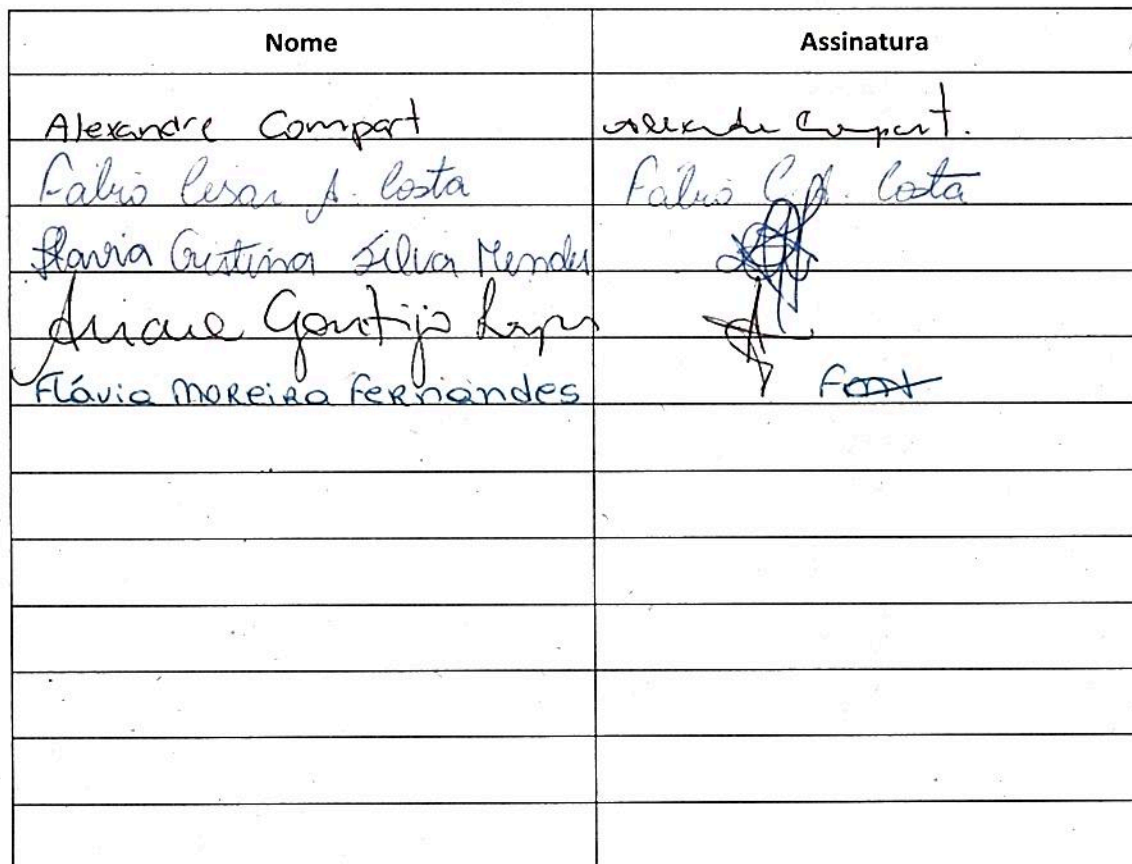 Nome Assinatura
Alexandre Compart Alexandre Compart.
Fábio Cesar A. Costa Fábio C. A. Costa
Flavia Cristina Silva Mendes
Gontijo
Flávia Moreira Fernandes